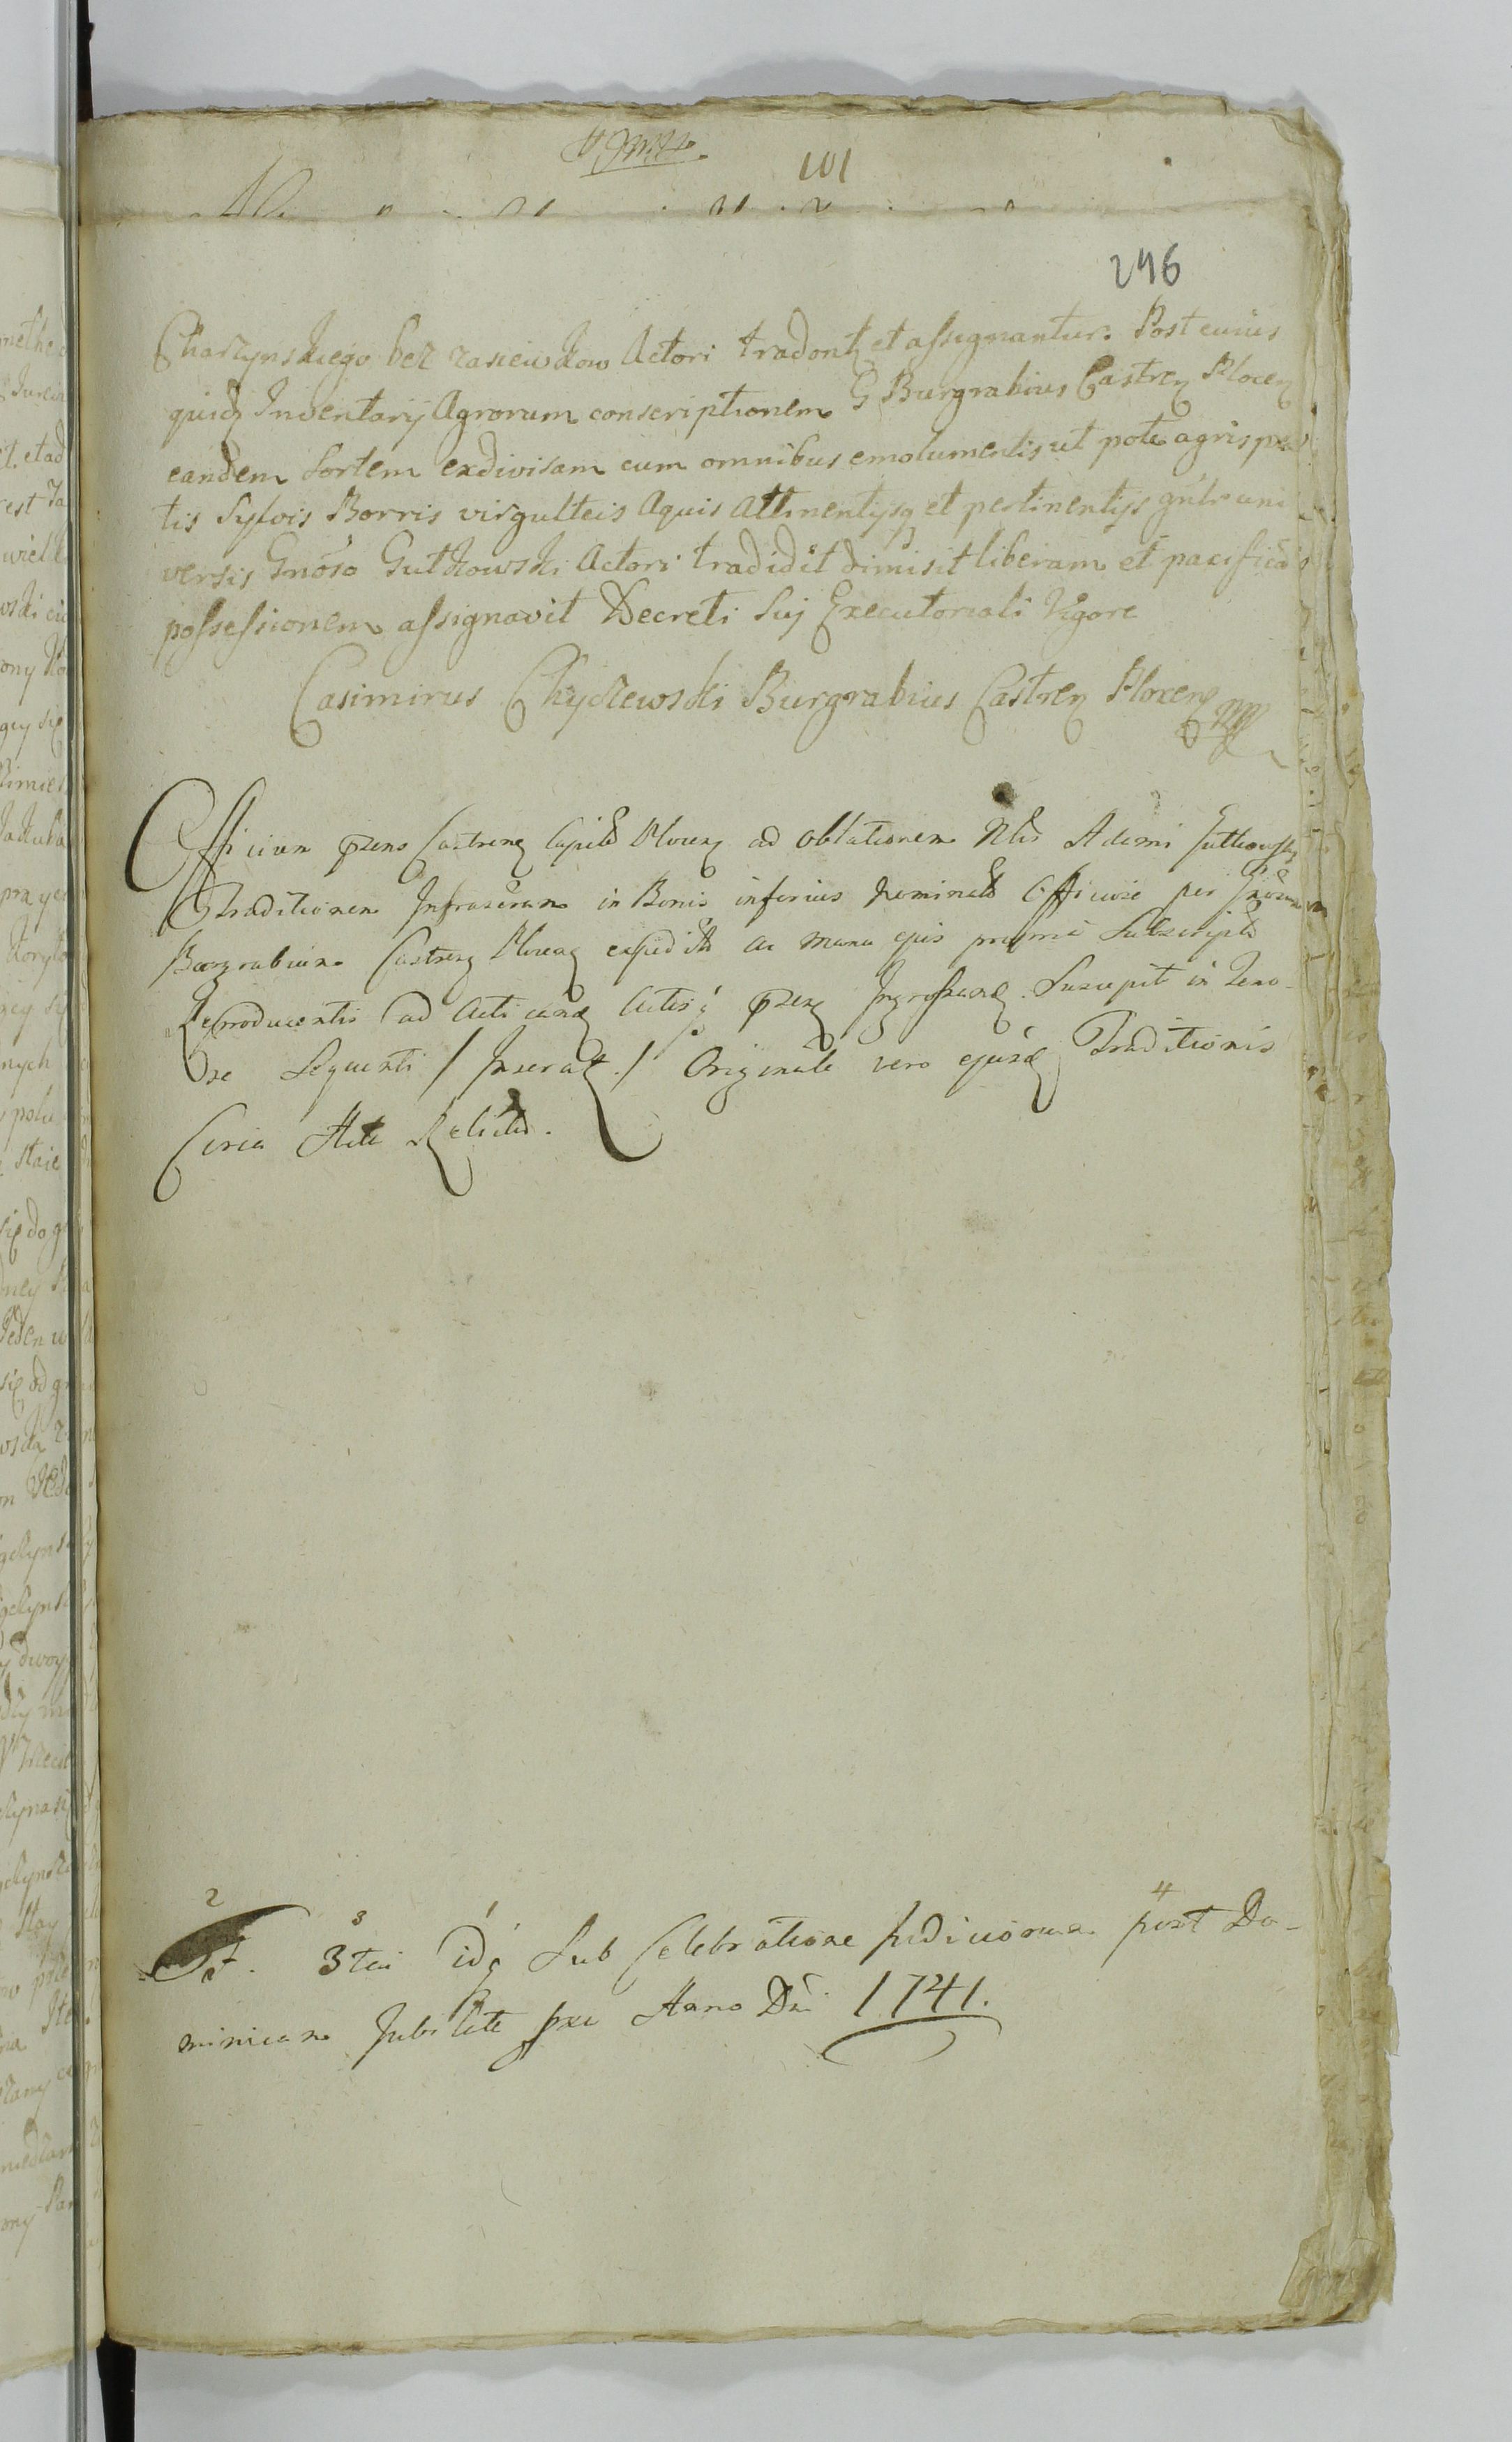 101
246
Charzynskiego bez zasiewkow Actori tradontz et assignantur. Post cuius
quidz Inventarij Agrorum conscriptionem G Burgrabius Castrenz Plocenz
eandem Sortem exdivisam cum omnibus emolumentis ut pote agris pra
tis Sylvis Borris virgulteis Aquis Attinentijsq et pertinentijs gnlr uni
versis Gnoso Gutkowski Actori tradidit dimisit liberam et pacificam
possessionem assignavit Decreti Suj Executoriali Vigore
Casimirus Chyczewski Burgrabius Castrenz Plocenz
Officium prens Castrenz Capitle Plocenz ad oblationem Nlis Adami Gutkowski
Traditionem Infrascram in Bonis inferius nominatis Officiose per Gnosum
Burgrabium Castrenz Plocenz expeditam ac manu ejus propria Subscriptam
Reproducentis ad Acticandz Actisq prenz Ingrossandz Suscepit in Teno-
re Sequenti / Inseratz / Originale vero ejusdz Traditionis
Circa Acta Relicta.
2 3 1 4
Fer. 3tia idq Sub Celebratione Judiciorum post Do-
minicam Jubilate Anno Dni 1741.